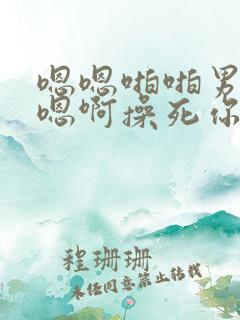 嗯嗯啪啪男
嗯啊操死你
程珊珊
未经同意禁止转载